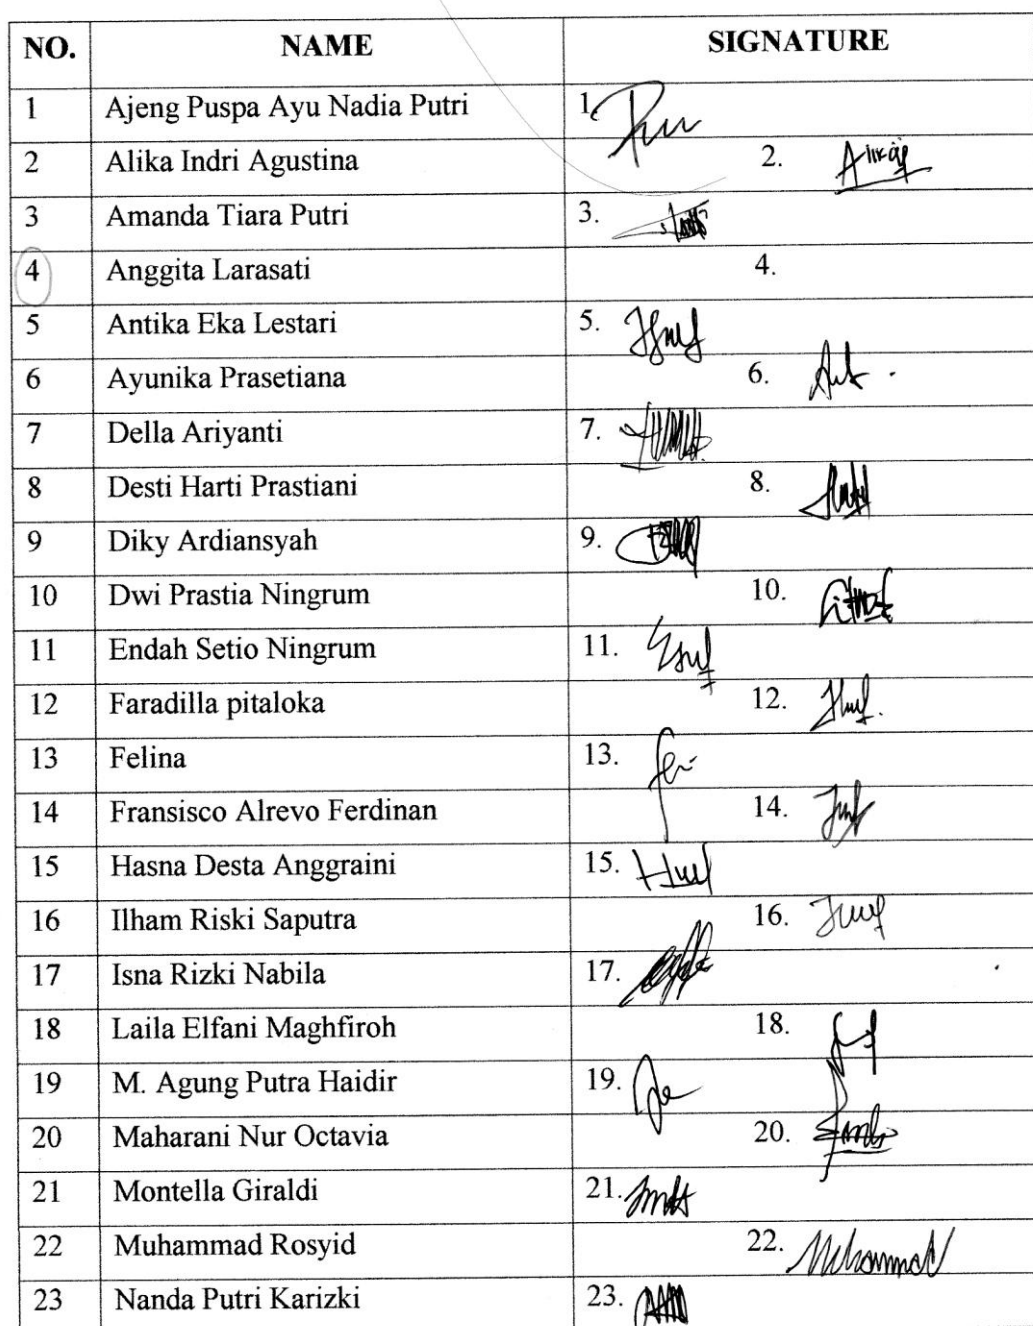 NO. NAME SIGNATURE
1 Ajeng Puspa Ayu Nadia Putri 1.
2 Alika Indri Agustina 2.
3 Amanda Tiara Putri 3.
4 Anggita Larasati 4.
5 Antika Eka Lestari 5.
6 Ayunika Prasetiana 6.
7 Della Ariyanti 7.
8 Desti Harti Prastiani 8.
9 Diky Ardiansyah 9.
10 Dwi Prastia Ningrum 10.
11 Endah Setio Ningrum 11.
12 Faradilla pitaloka 12.
13 Felina 13.
14 Fransisco Alrevo Ferdinan 14.
15 Hasna Desta Anggraini 15.
16 Ilham Riski Saputra 16.
17 Isna Rizki Nabila 17.
18 Laila Elfani Maghfiroh 18.
19 M. Agung Putra Haidir 19.
20 Maharani Nur Octavia 20.
21 Montella Giraldi 21.
22 Muhammad Rosyid 22.
23 Nanda Putri Karizki 23.